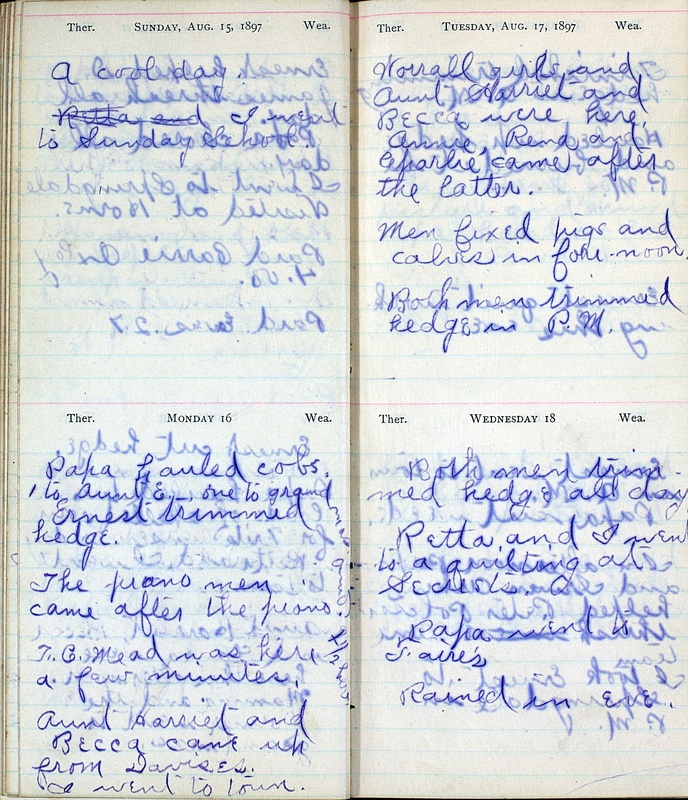 Ther. Sunday, Aug. 15, 1897 Wea.
A cool day.
Retta and I went
to Sunday School.
Ther. Monday 16 Wea.
Papa hauled cobs,
1 to Aunt E., one to grand
Ernest trimmed
hedge.
The piano men
came after the piano.
T. C. Mead was here
a few minutes.
Aunt Harriet and
Becca came up
from Davises.
I went to town.
Ther. Tuesday, Aug. 17, 1897 Wea.
Worrall girls and
Aunt Harriet and
Becca were here.
Annie, Rena and
Charlie came after
the latter.
Men fixed pigs and
calves in fore-noon.
Both men trimmed
hedge in P.M.
Ther. Wednesday 18 Wea.
Both men trim-
med hedge all day
Retta and I went
to a quilting at
Secrists.
Papa went to
Faires
Rained in Eve.